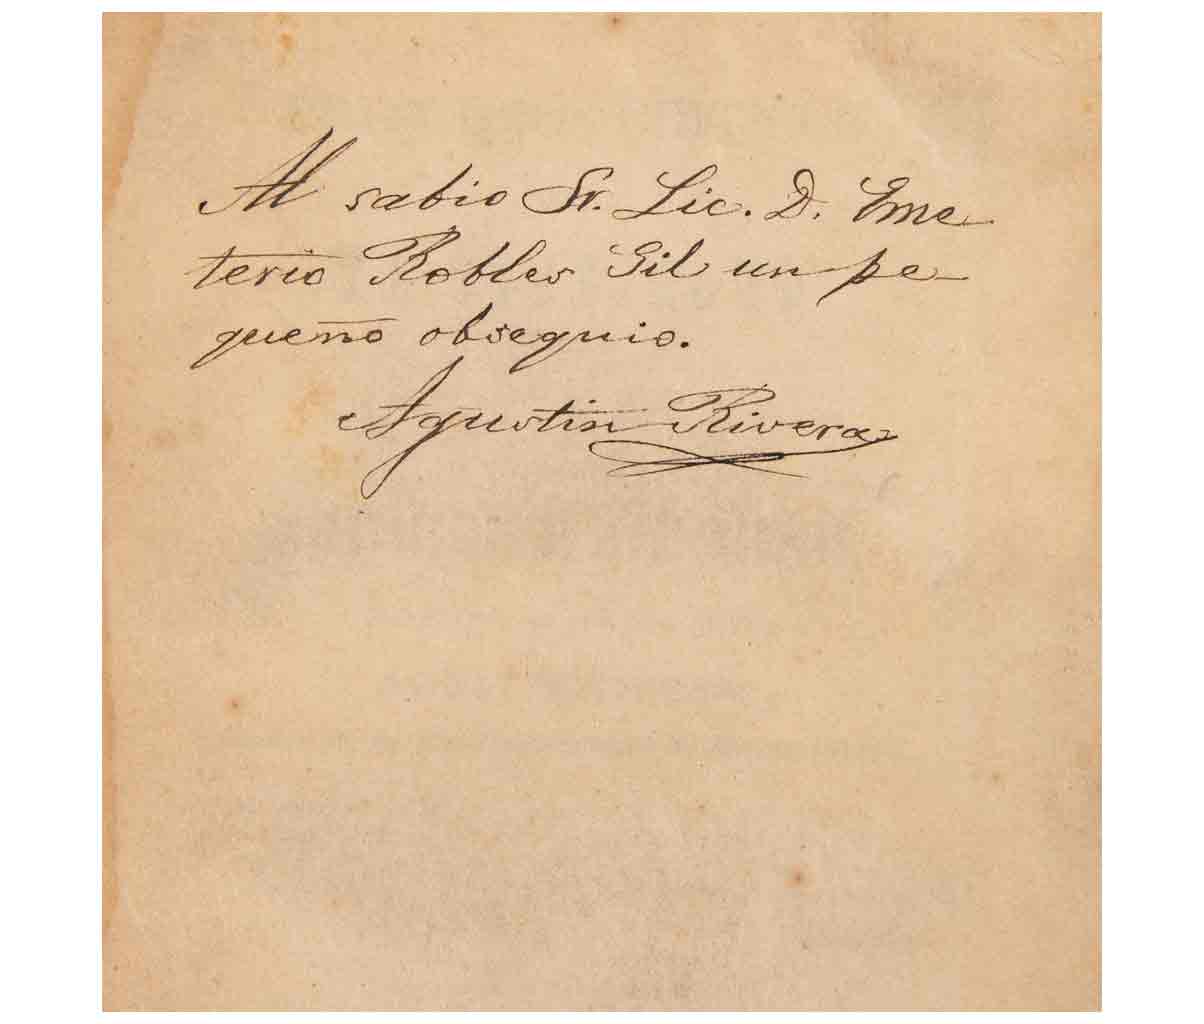 Al sabio Sr. Lic. D. Eme
terio Robles Gil un pe-
queño obsequio.
Agustin Rivera